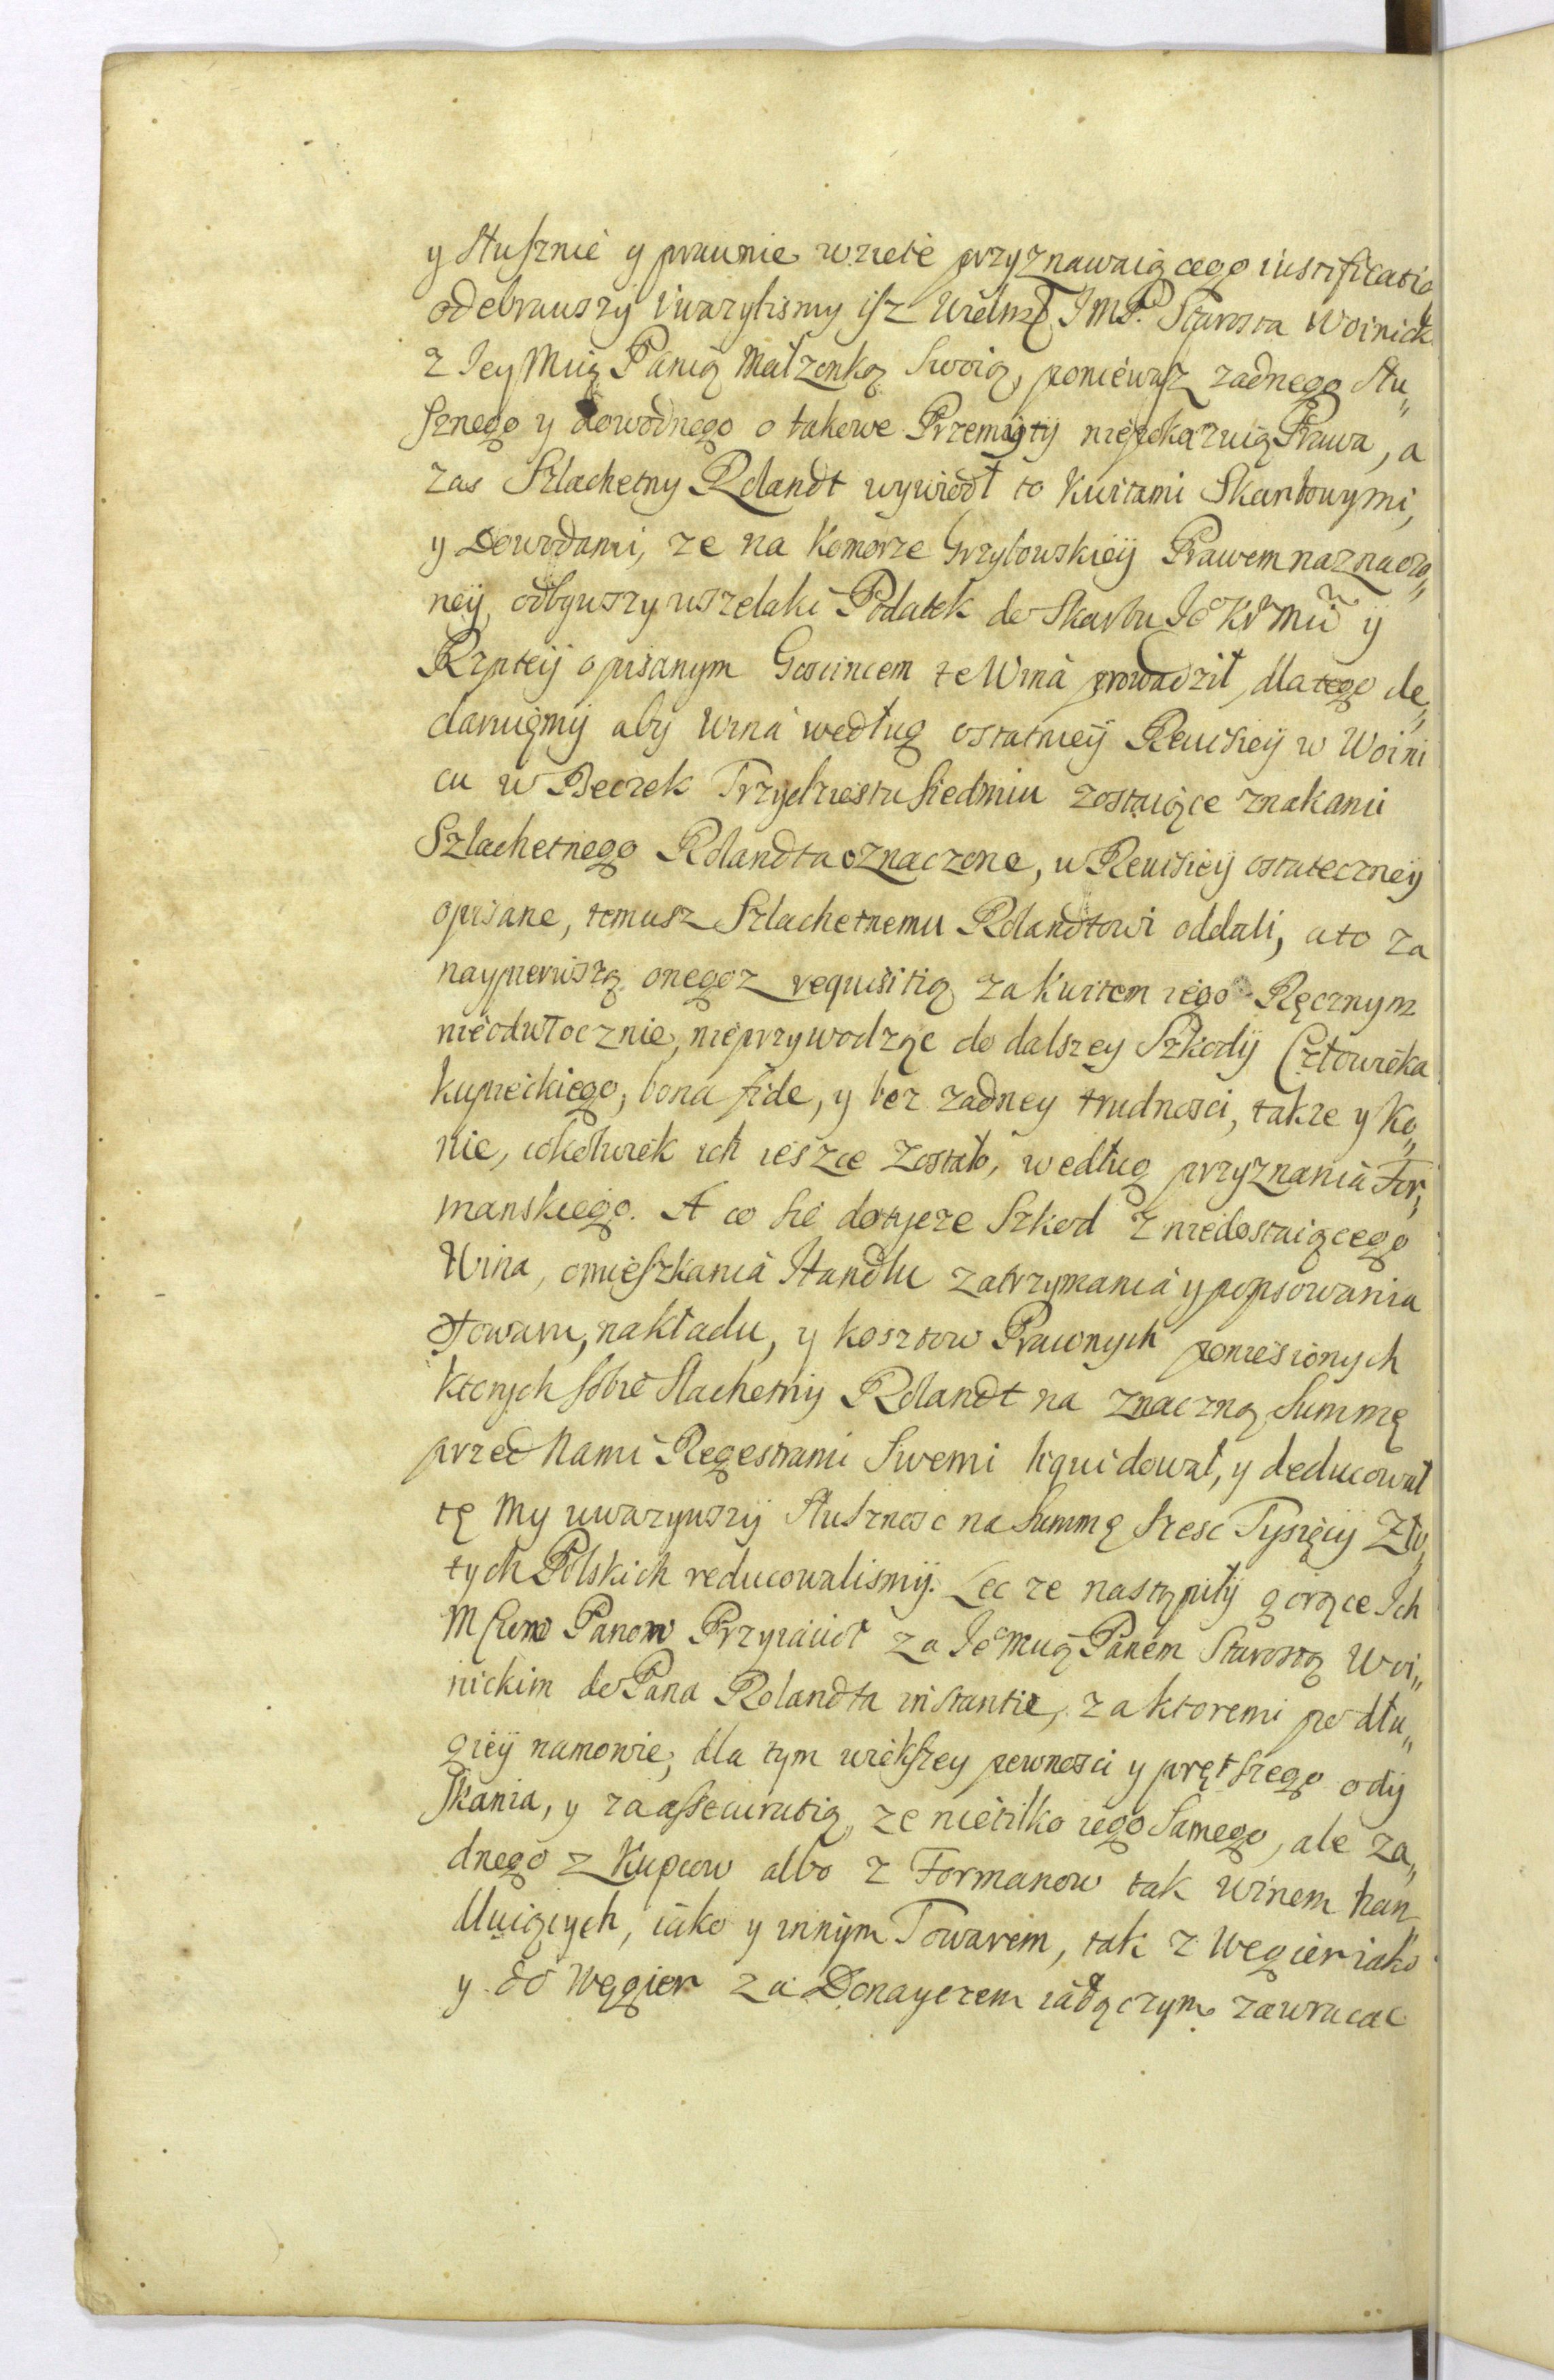 y słusznie y prawnie wziete przyznawaiącego iustificatią
odebrawszy vwazylismy isz Wielmż JMP. Starosta Woinick.
z Jey Mcią Panią Małzonką Swoią, poniewasz zadnego słu„
sznego y dowodnego o takowe Przemyty niepokazuią Prawa, a
zas Szlachetny Rolandt wywiodł to kwitami Skarbowymi,
y Dowodami, ze na Komorze Grzybowskiey Prawem naznaczo„
ney, odbywszy wszelaki Podatek do Skarbu Jeo Kr Mci y
Rzptey opisanym Goscincem te Wina prowadził, dla tego de„
claruięmy aby Wina według ostatniey Rewisiey w Woini
czu w Beczek Trzydziestu siedmiu zostaiące znakami
Szlachetnego Rolandta oznaczone, w Rewisiey ostateczney
opisane, temusz Szlachetnemu Rolandtowi oddali, a to za
naypierwszą onegoz requisitią za kwitem iego Ręcznym
nieodwłocznie, nieprzywodząc do dalszey Szkody Człowieka
kupieckiego, bona fide, y bez zadney trudnosci, takze y Ko„
nie, cokolwiek ich iescze zostało, według przyznania For„
manskiego. A co sie dotycze Szkod z niedostaiącego
Wina, omieszkania Handlu zatrzymania y popsowania
Towaru, nakładu, y kosztow Prawnych poniesionych
ktorych sobie Slachetny Rolandt na znaczną Summę
przed Nami Regestrami Swemi liquidował, y deducował
tę My uwazywszy słusznosc na Summę szesc Tysięcy Zło„
tych Polskich reducowalismy. Lec ze nastąpiły gorące Ich
Mciow Panow Przyiacioł za Jeo Mcią Panem Starostą Woi„
nickim do Pana Rolandta instantie, za ktoremi po dłu„
giey namowie, dla tym wiekszey pewnosci y prętszego ody
skania, y za assecuratią, ze nietilko iego samego, ale za„
dnego z Kupcow albo z Formanow tak winem han„
dluiących, iako y innym Towarem, tak z Węgier iako
y do Węgier za Donayczem iadączym zawracac